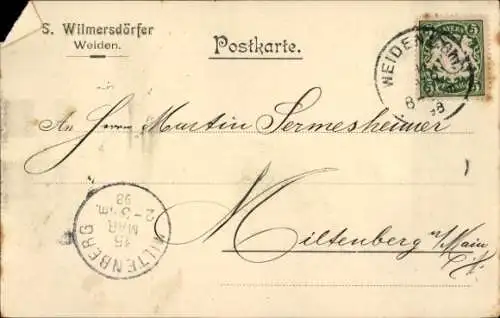 S. Wilmersdörfer
Weiden.
Postkarte.
WEIDEN
8
98
BAYERN
5
An Herrn Martin Sermesheimer
Miltenberg a/Main
MILTENBERG
15
MAR
98
2-3